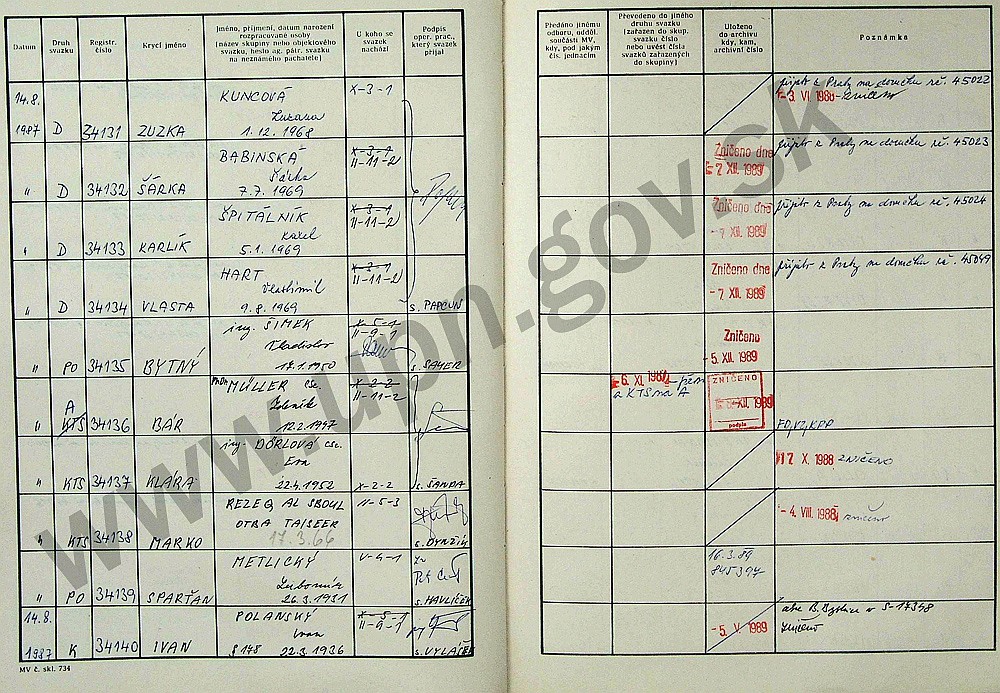 Datum
Druh
svazku
Registr.
číslo
Krycí jméno
Jméno, příjmení, datum narození
rozpracované osoby
(název skupiny nebo objektového
svazku, heslo ag. pátr. svazku
na neznámého pachatele)
U koho se
svazek
nachází
Podpis
oper. prac.,
který svazek
přijal
Předáno jinému
odboru, odděl.
součásti MV,
kdy, pod jakým
čís. jednacím
Převedeno do jiného
druhu svazku
(zařazen do skup.
svazku číslo
nebo uvést čísla
svazků zařazených
do skupiny)
Uloženo
do archivu
kdy, kam,
archivní číslo
Poznámka
14.8.
1987 D 34131 ZUZKA
KUNCOVÁ
Zuzana
1.12.1968
X-3-1
45022
-3. VI. 1988
zničeno
" D 34132 ŠÁRKA
BABINSKÁ
Šárka
7.7.1969
X-3-1
II-11-2
Zničeno dne
-7 XII. 1989
45023
" D 34133 KARLÍK
ŠPITÁLNÍK
Karel
5.1.1969
X-3-1
II-11-2
Zničeno dne
-7 XII. 1989
45024
" D 34134 VLASTA
HART
Vlastimil
9.8.1969
X-3-1
II-11-2
s. PAPCUN
Zničeno dne
-7 XII. 1989
45049
" PO 34135 BYTNÝ
ing. ŠIMEK
Vladislav
17.1.1950
X-5-1
II-9-1
Zničeno
-5. XII. 1989
A
" KTS 34136 BÁR
MÜLLER CSc.
Zdeněk
X-2-2
II-11-2
6. XI. 1987
a KTS na A
ZNIČENO
XII. 1989
podpis
" KTS 34137 KLÁRA
ing. DÖRLOVÁ CSc.
Eva
22.4.1952
X-2-2
s. ŠANDA
12 X. 1988 ZNIČENO
" KTS 34138 MARKO
REZEQ AL SBOUL
OTBA TAISEER
17.3.66
II-5-3
-4. VIII. 1988 zničeno
" PO 34139 SPARŤAN
METLICKÝ
Lubomír
26.3.1931
V-4-1
s. HAVLÍČEK
16.3.89
845397
14.8.
1987 K 34140 IVAN
POLANSKÝ
Ivan
§ 178 22.3.1936
X-5-1
II-9-1
-5. V. 1989
zničeno
MV č. skl. 734
www.upn.gov.sk